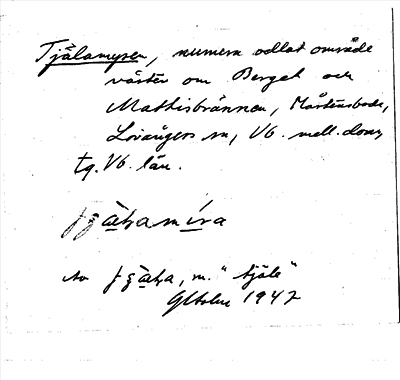 Tjälamyren, numera odlat område
väster om Berget och
Mathisbrännan, Mårtensboda,
Lövångers sn, Vb. mell. doms
tg. Vb. län.
av , m. "tjäle"
GHolm 1947